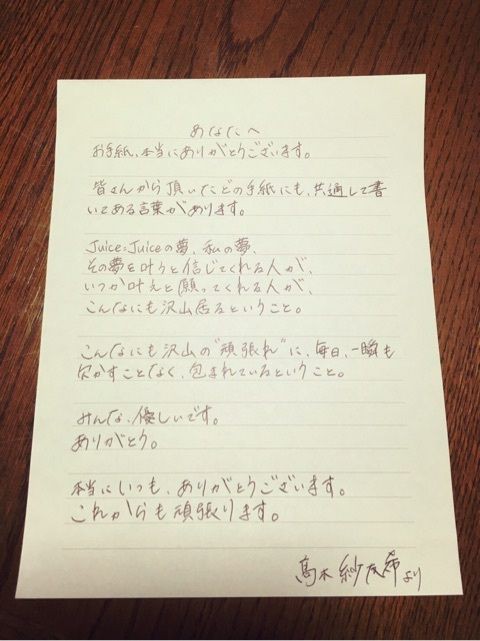 あなたへ
お手紙、本当にありがとうございます。
皆さんから頂いたどの手紙にも、共通して書
いてある言葉があります。
Juice=Juiceの夢、私の夢、
その夢を叶うと信じてくれる人が、
いつか叶えと願ってくれる人が、
こんなにも沢山居るということ。
こんなにも沢山の"頑張れ"に、毎日、一瞬も
欠かすことなく、包まれているということ。
みんな、優しいです。
ありがとう。
本当にいつも、ありがとうございます。
これからも頑張ります。
高木紗友希より